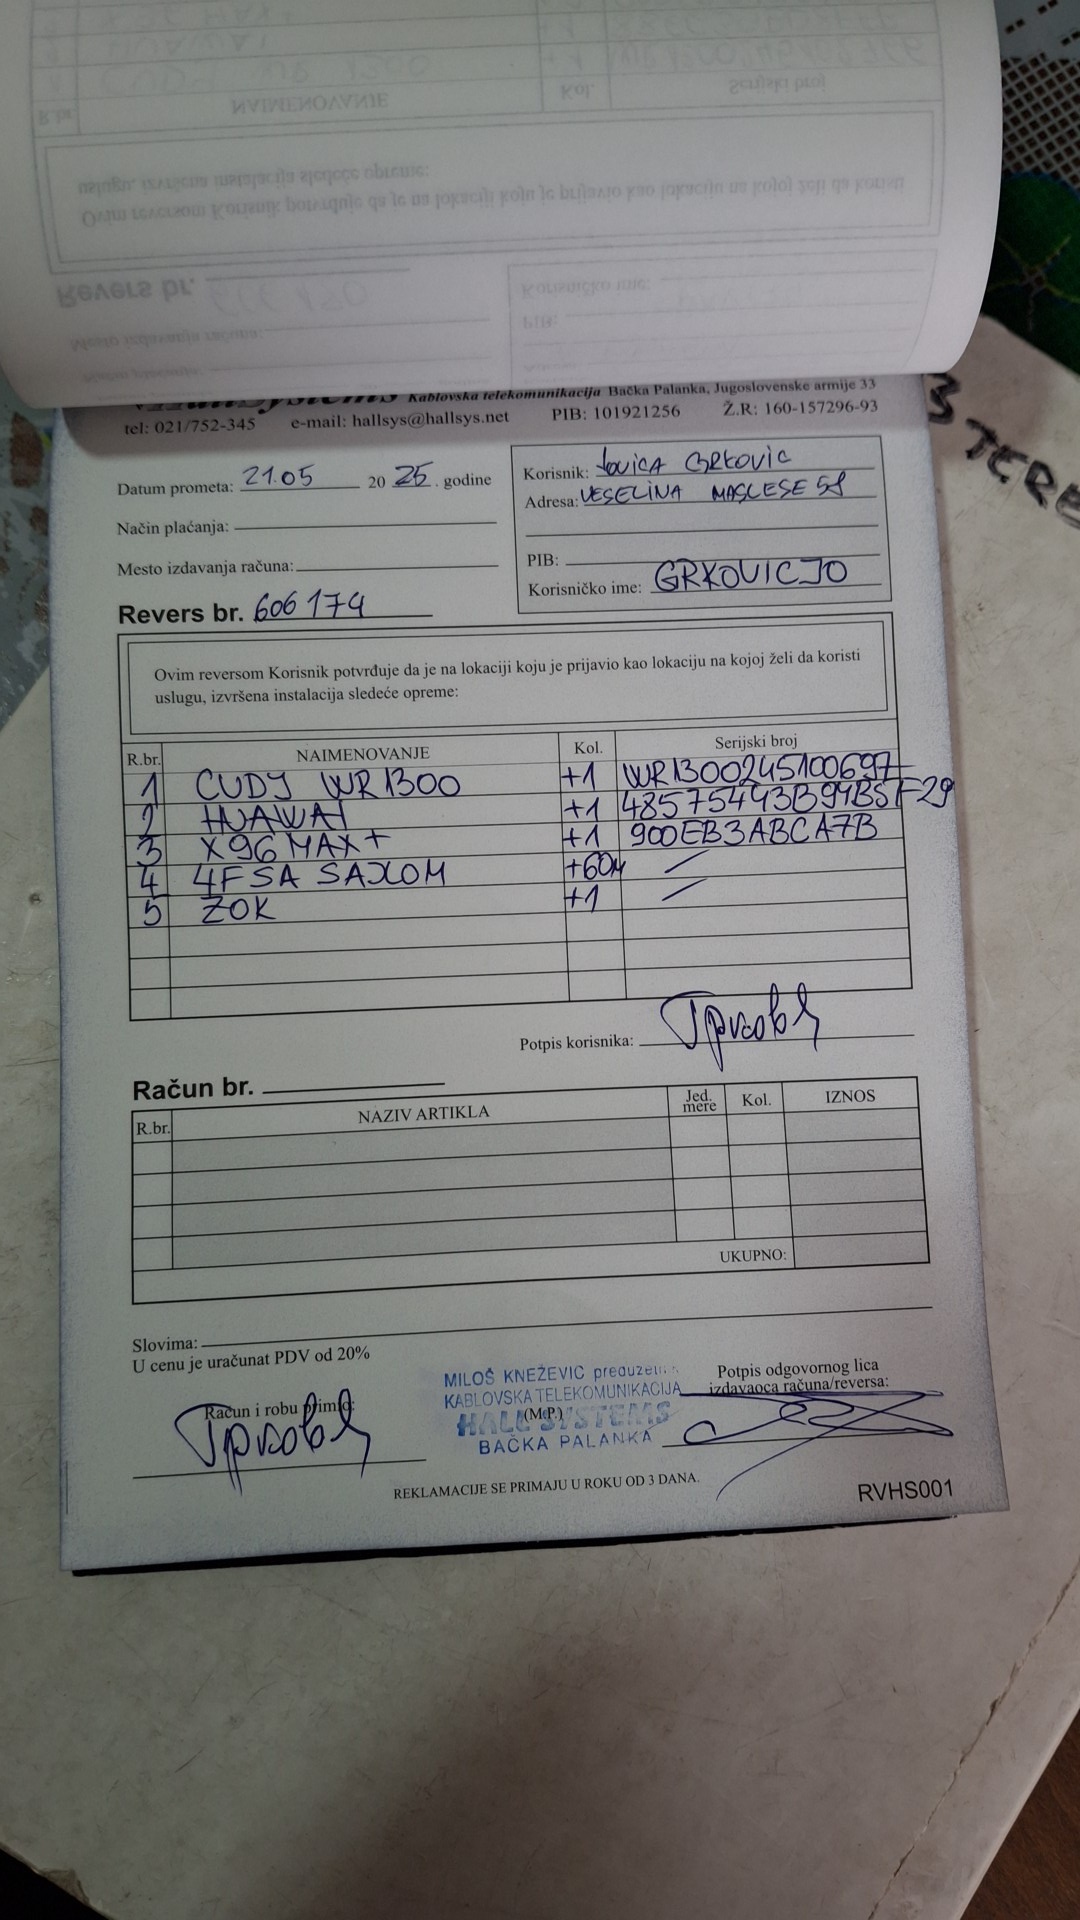 HallSystems Kablovska telekomunikacija Bačka Palanka, Jugoslovenske armije 33
tel: 021/752-345 e-mail: hallsys@hallsys.net PIB: 101921256 Ž.R: 160-157296-93
Datum prometa: 21.05 20 25. godine
Način plaćanja:
Mesto izdavanja računa:
Revers br. 606174
Korisnik: JOVICA GRKOVIC
Adresa: VESELINA MASLESE 58
PIB:
Korisničko ime: GRKOVICJO
Ovim reversom Korisnik potvrđuje da je na lokaciji koju je prijavio kao lokaciju na kojoj želi da koristi
uslugu, izvršena instalacija sledeće opreme:
R.br. NAIMENOVANJE Kol. Serijski broj
1 CUDY WR1300 +1 WR1300245100697
2 HUAWAI +1 48575443B94B5F29
3 X96 MAX+ +1 900EB3ABCA7B
4 4FSA SAJLOM +60M /
5 ZOK +1 /
Potpis korisnika: Грковић
Račun br.
R.br. NAZIV ARTIKLA Jed. mere Kol. IZNOS
UKUPNO:
Slovima:
U cenu je uračunat PDV od 20%
Račun i robu primio: Грковић
MILOŠ KNEŽEVIĆ preduzetnik
KABLOVSKA TELEKOMUNIKACIJA
(M.P.)
HALL SYSTEMS
BAČKA PALANKA
Potpis odgovornog lica
izdavaoca računa/reversa:
REKLAMACIJE SE PRIMAJU U ROKU OD 3 DANA.
RVHS001